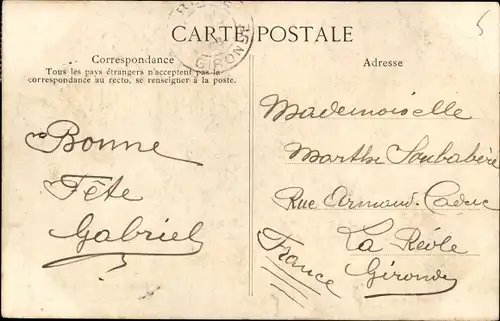 CARTE POSTALE
GIRONDE
Correspondance
Tous les pays étrangers n'acceptent pas la
correspondance au recto, se renseigner à la poste.
Adresse
5
Bonne
Fête
Gabriel
Mademoiselle
Marthe Soubabère
Rue Armand-Caduc
La Réole
Gironde
France